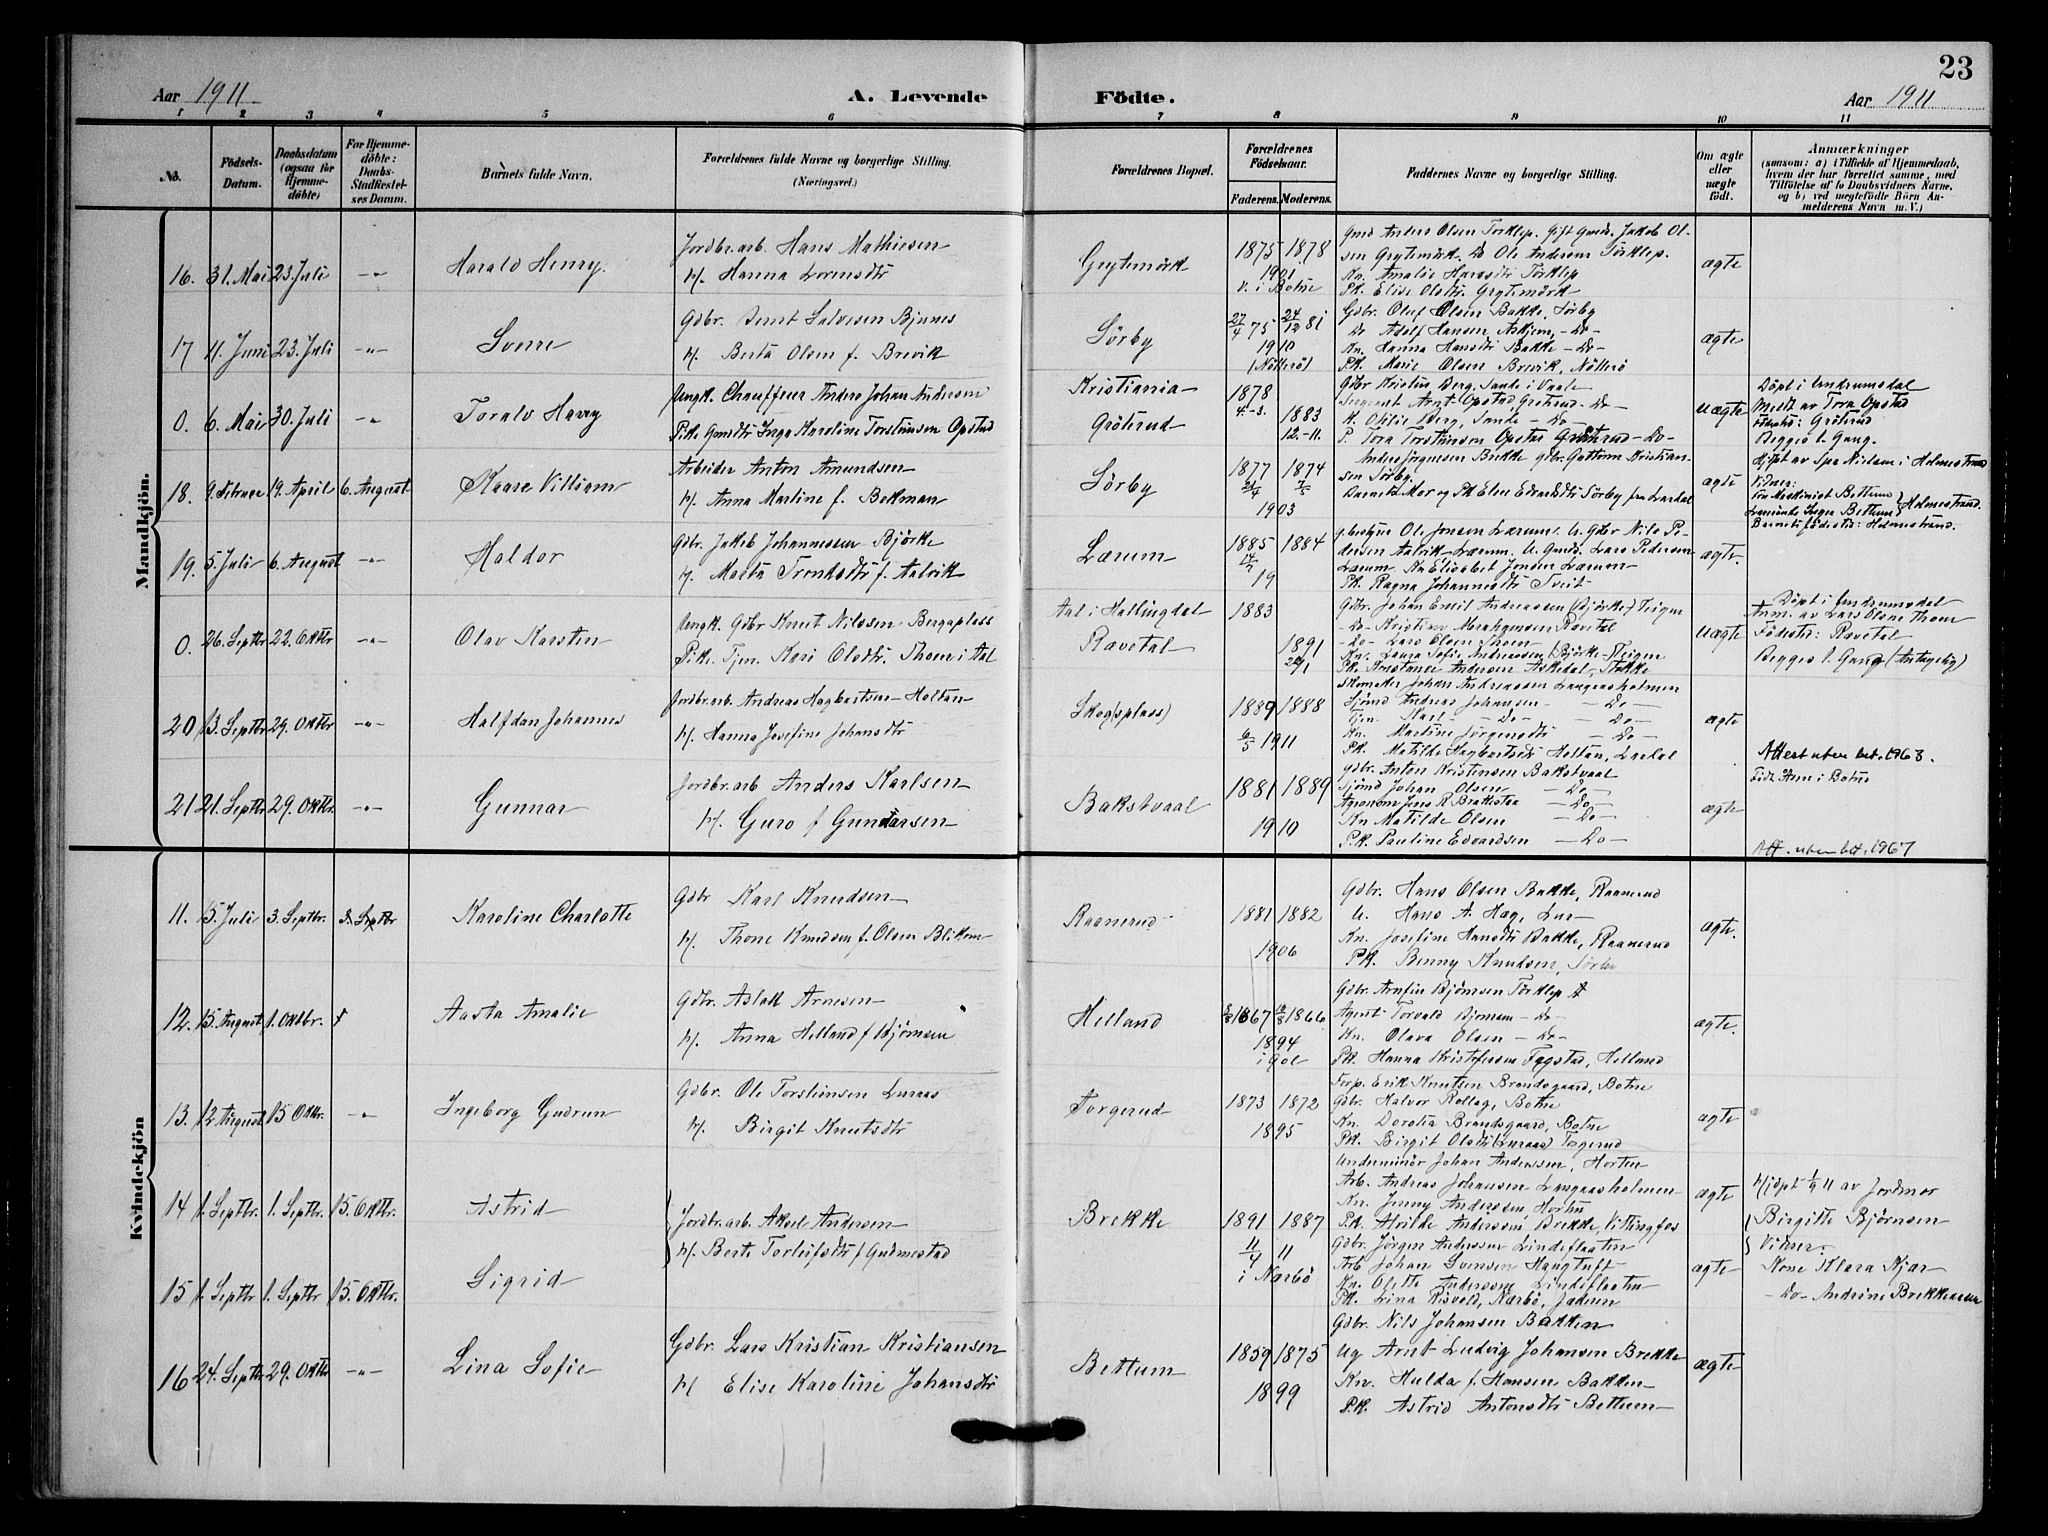 23
Aar 1911
A. Levende Födte.
Aar 1911
1 2 3 4 5 6 7 8 9 10 11
No.
Födsels-Datum.
Daabsdatum (ogsaa for Hjemmedöbte)
For Hjemmedöbte: Daabs-Stadfæstelses Datum.
Barnets fulde Navn.
Forældrenes fulde Navne og borgerlige Stilling.
(Næringsvei.)
Forældrenes Bopæl.
Forældrenes Födselsaar.
Faderens. Moderens.
Faddernes Navne og borgerlige Stilling.
Om ægte eller uægte födt.
Anmærkninger
(saasom: a) i Tilfælde af Hjemmedaab, hvem der har forrettet samme, med Tilföielse af to Daabsvidners Navne, og b) ved uegtefödte Börn Anmelderens Navn m. V.)
Mandkjön.
16. 31. Mai 23. Juli -"- Harald Henry
Jordbr. arb. Hans Mathiesen
H. Hanna Lorensdtr
Grytemörk
1875 1878
1901
v. i Botne
Gmd Anders Olsen Torklep. Gift Gmds. Jakob Ol-
sen Grytemörk. Do Ole Andersen Torklep.
Kn. Amalie Hansdtr Torklep
Pk. Elise Olsdtr. Grytemörk
ægte
17 11. Juni 23. Juli -"- Sverre
Gdbr. Bernt Salvesen Bjunes
H. Berta Olsen f. Brevik
Sörby
27/4 75 24/12 81
1910
(Nötterö)
Gdbr. Oluf Olsen Bakke, Sörby
Do Adolf Hansen, Askjem, - Do -
Kn. Hanna Hansdtr Bakke - Do -
Pk. Marie Olsen Brevik, Nötterö
ægte
0. 6. Mai 30. Juli -"- Toralv Harry
Ungk. Chauffeur Anders Johan Andersen
Pike Gmdtr Inga Karoline Torstensen Opstad
Kristiania
Gröterud
1878
4.-3. 1883
12.-11.
Gdbr Kristian Berg, Sande i Vaale
Sergeant Arnt Opstad, Gröterud - Do -
K. Otilie Berg, Sande - Do -
P. Tora Torstensen Opstad Gröterud - Do -
uægte
Döpt i Undrumsdal
Meldt av Tora Opstad
Födested: Gröterud
Begges 1. Gang.
18. 9. Februar 19. April 6. August Kaare Villiam
Arbeider Anton Amundsen
H. Anna Martine f. Bekman
Sörby
1877 1874
24/4 7/5
1903
Anders Jörgensen Brekke gdbr. Guttorm Kristian-
sen Sörby.
Barnets Mor og Pk Elen Edvardsdtr Sörby fra Lardal
ægte
Hjdpt av Spr Nielsen i Holmestrand
Vidner:
Fru Maskinist Bettum
Inger Bettum } Holmestrand.
Barnets födested: Holmestrand.
19. 5. Juli 6. August -"- Haldor
Gdbr. Jakob Johannessen Björke
H. Marta Trondsdtr f. Aalvik
Lærum
1885 1884
14/7
19
Ole Jonsen Lærum. U. Gdbr Nils Pe-
dersen Aalvik Lærum. U. Gmds. Lars Pedersen
Lærum. Kn Elisabet Jonsen Lærum -
Pk. Ragna Johannesdtr Tveit -
ægte.
0. 26. Septbr 22. Oktbr -"- Olav Karsten
Ungk. Gdbr Knut Nilssen Bergaplass
Pike. Tjen. Kari Olsdtr. Thoen i Aal
Aal i Hallingdal
Ravetal
1883
1891
Gdbr. Johan Emil Andreassen (Björke) Teigen
- Do - Kristian Abrahamsen Ravetal
- Do - Lars Olsen Thoen -
Kn. Laura Sofie Andreassen (Björke-) Teigen
Pk. Kristence Andersen Askedal, Stokke
uægte
Döpt i Undrumsdal
Anm. av Lars Olsen Thoen
Födested: Ravetal
Begges 1. Gang (Antagelig)
20 13. Septbr. 29. Oktbr -"- Halfdan Johannes
Jordbr. arb. Andreas Hagbartsen - Holtan
H. Hanna Josefine Johansdtr
Skog(splass)
1889 1888
6/5 1911
Skomaker Johan Andreassen Langaasholmen
Sjömd Andreas Johansen - - Do -
Tjen. Karl - Do - - Do -
Kn. Martine Jörgensdtr - Do -
Pk. Matilde Hagbartsdtr Holtan, Lardal
ægte
Attest uten bet. 1963.
21 21. Septbr 29. Oktbr. -"- Gunnar
Jordbr. arb Anders Karlsen
H. Guro f Gundersen
Bakstvaal
1881 1889
1910
Gdbr. Anton Kristensen Bakstvaal
Sjömd Johan Olsen - Do -
Agronom Jens R. Brakstaa - Do -
Kn Matilde Olsen - Do -
Pk. Pauline Edvardsen - Do -
ægte
Födt Hem i Botne
Att. uten bet. 1967
Kvindekjön
11. 15. Juli 3. Septbr. 3. Septbr Karoline Charlotte
Gdbr Karl Knudsen
H. Thone Knudsen f. Olsen Bliksm
Raanerud
1881 1882
1906
Gdbr. Hans Olsen Bakke, Raanerud
U. Hans A. Hag, Lur -
Kn. Josefine Hansdtr Bakke, Raanerud
Pk. Benny Knutsen, Sörby
ægte.
12. 15. August 1. Oktbr. Aasta Amalie
Gdbr. Aslak Arnesen
H. Anna Helland f Bjömsen
Helland
1867 1866
1894
i Gol
Gdbr. Arnfin Bjömsen Torklep
Agent Torvald Bjömsen - Do -
Kn. Olava Olsen - Do -
Pk. Hanna Kristofersen Fegstad, Helland
ægte.
13. 12 August 15 Oktbr. -"- Ingeborg Gudrun
Gdbr. Ole Torsteinsen Luraas
H. Birgit Knutsdtr
Torgerud
1873 1872
1895
Forp. Erik Knutsen Brandsgaard, Botne
Gdbr. Halvor Rollag, Botne
Kn. Dorotea Brandsgaard, Botne
Pk. Birgit Olsdtr (Luraas) Togerud
ægte
14 1. Septbr. 1. Septbr. 15. Oktbr. Astrid
Jordbr. arb. Aksel Andersen
H. Berte Torleifsdtr f Gudmestad
Brekke
1891 1887
11/4 11
i Nærbö
Underminör Johan Anderssen, Horten
Arb. Andreas Johansen Langaasholmen
Kn. Jenny Anderssen Horten
Pk. Alvilde Anderssen, Brekke, Vittingfos
ægte
Hjdöpt 1/9 11 av Jordmor
Birgitte Björnsen
Vidner:
15 1. Septbr 1. Septbr 15. Oktbr. Sigrid
Gdbr. Jörgen Anderssen Lindeflaaten
Arb Johan Svensen Haugtuft -
Kn. Olette Anderssen Lindeflaaten
Pk. Lina Risvold, Nærbö, Jæderen
ægte
Kone Klara Kjær
- Do - Andrine Brekkeaasen
16 24. Septbr 29. Oktbr -"- Lina Sofie
Gdbr. Lars Kristian Kristiansen
H Elise Karoline Johansdtr
Bettum
1859 1875
1899
Gdbr. Nils Johansen Bakken
Ug Arnt Ludvig Johansen Brekke
Kn. Hulda f. Hansen Bakken
Pk. Astrid Antonsdtr Bettum
ægte